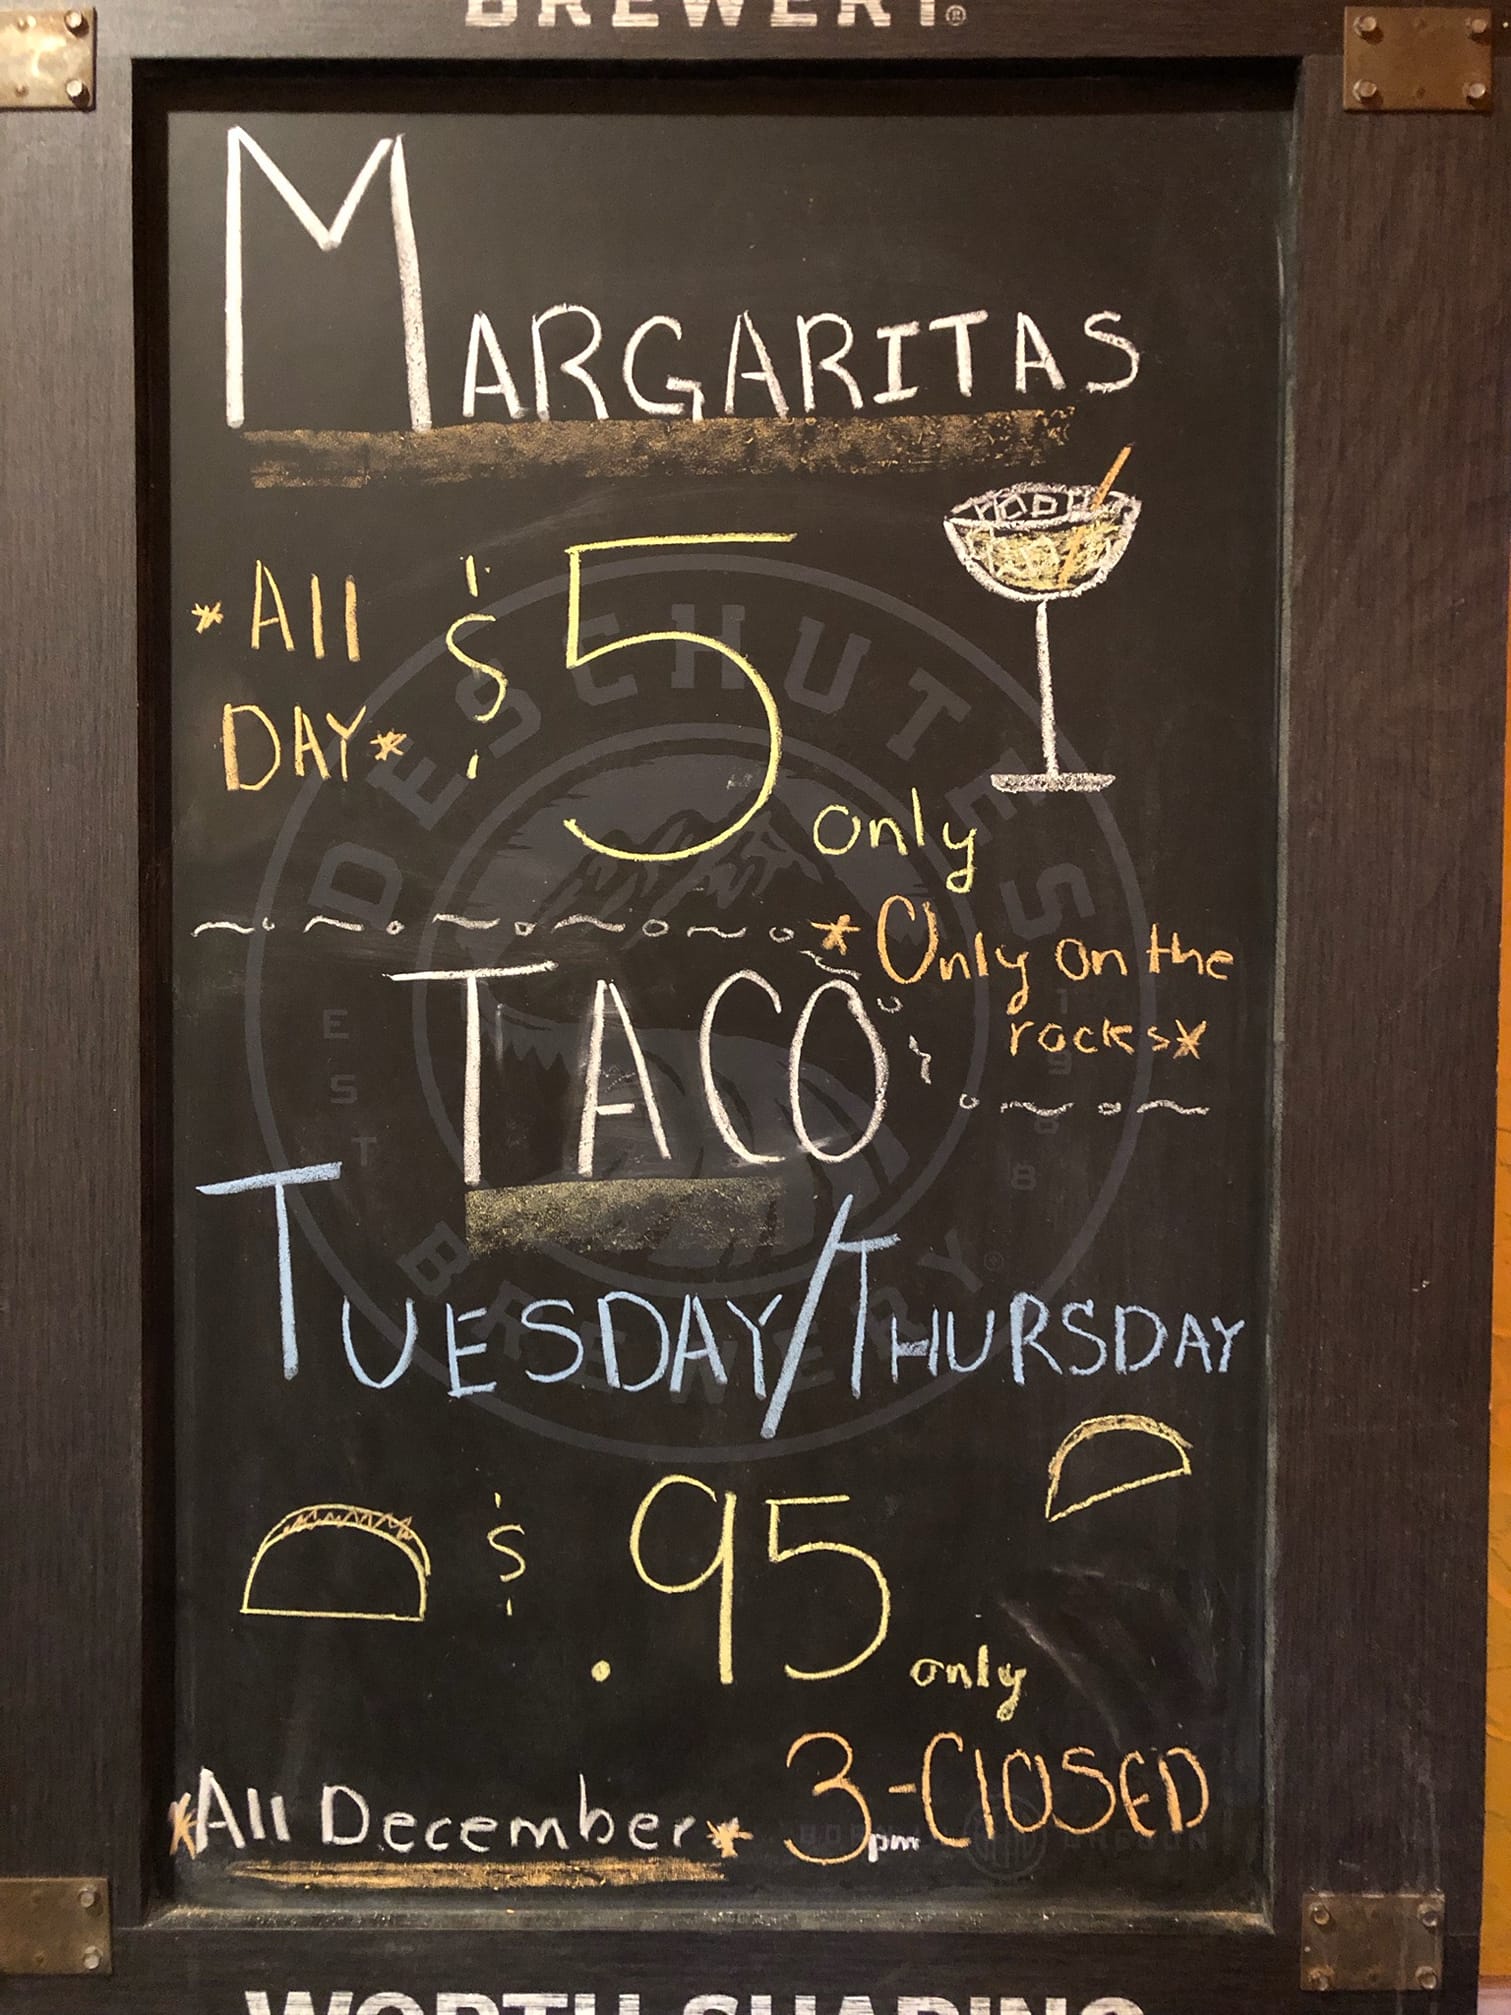 BREWERY®
MARGARITAS
*All
DAY*
$5 only
*Only on the
rocks*
TACO
TUESDAY/THURSDAY
$.95 only
*All December*
3pm-ClOSED
DESCHUTES
BREWERY®
EST
1988
WORTH SHARING